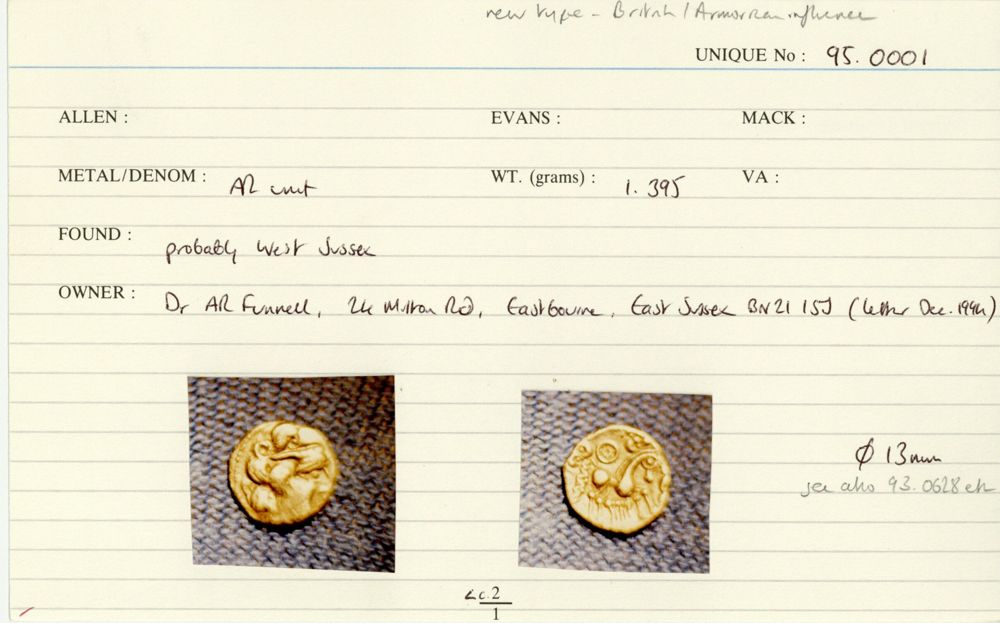 new type - British / Armorican influence
UNIQUE No : 95.0001
ALLEN : EVANS : MACK :
METAL/DENOM : AR unit WT. (grams) : 1.395 VA :
FOUND : probably West Sussex
OWNER : Dr AR Funnell, 24 Milton Rd, Eastbourne, East Sussex BN21 1SJ (letter Dec. 1994)
Ø 13mm
see also 93.0628 etc
<c.2
1